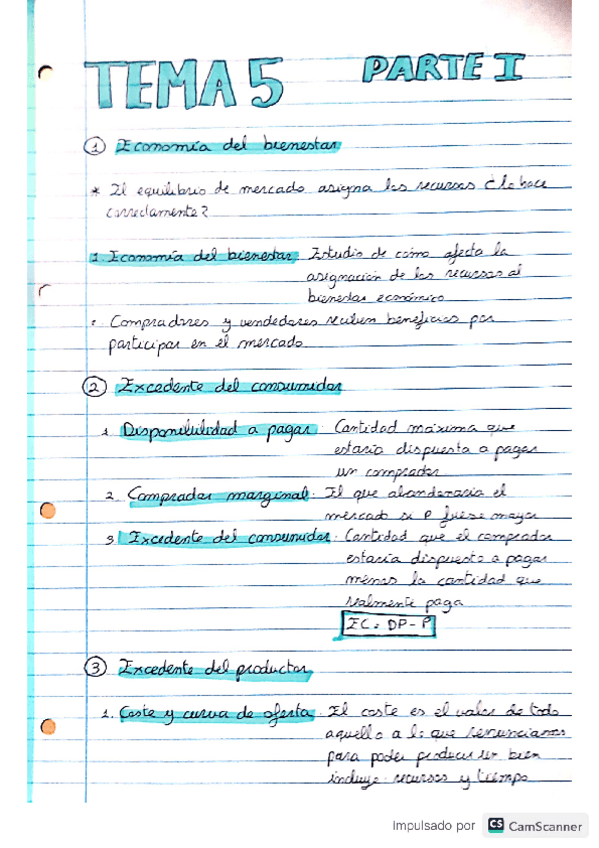 TEMA 5 PARTE I
① Economía del bienestar
* El equilibrio de mercado asigna los recursos ¿lo hace
correctamente?
1. Economía del bienestar. Estudio de cómo afecta la
asignación de los recursos al
bienestar económico
· Compradores y vendedores reciben beneficios por
participar en el mercado
② Excedente del consumidor
1. Disponibilidad a pagar. Cantidad máxima que
estaría dispuesta a pagar
un comprador
2. Comprador marginal. El que abandonaría el
mercado si P fuese mayor
3. Excedente del consumidor. Cantidad que el comprador
estaría dispuesto a pagar
menos la cantidad que
realmente paga
EC = DP - P
③ Excedente del productor
1. Coste y curva de oferta. El coste es el valor de todo
aquello a lo que renunciamos
para poder producir un bien
incluye recursos y tiempo
Impulsado por CS CamScanner